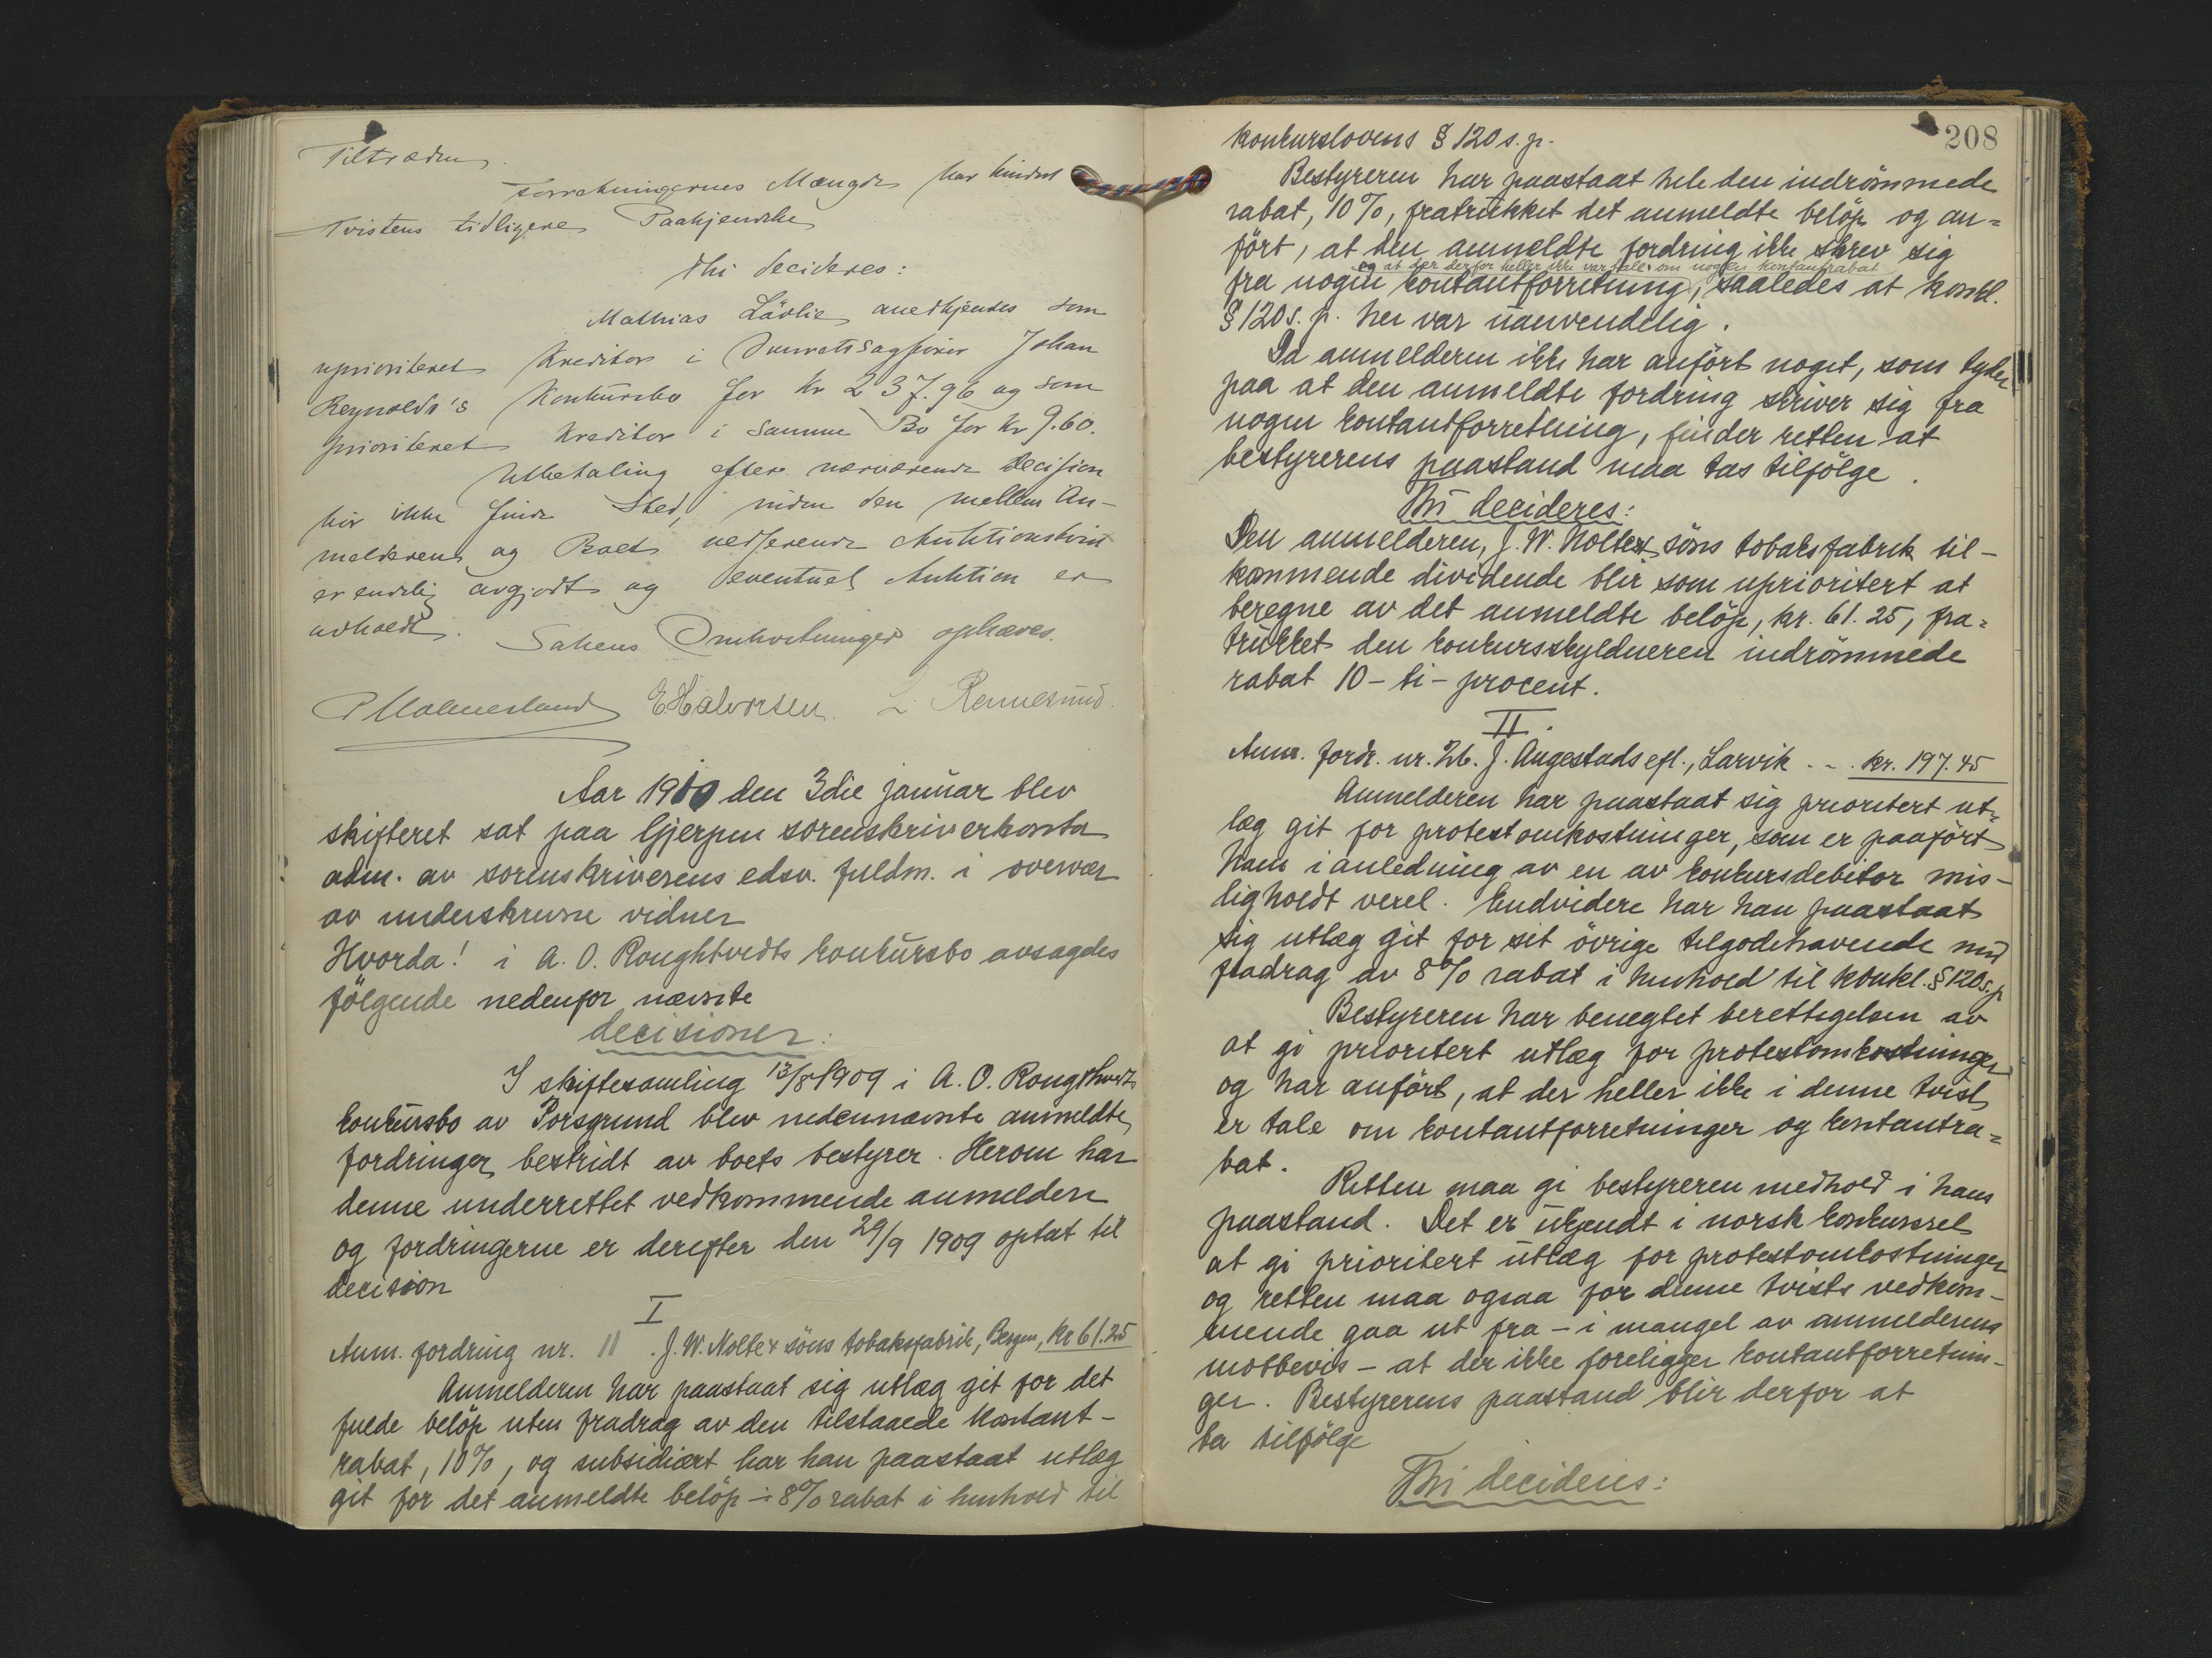 Tiltrædes.
Forretningernes Mængde har hindret
Tvistens tidligere Paakjendelse
Thi decideres:
Mathias Lövlie anerkjendes som
uprioriteret Kreditor i Overretssagfører Johan
Reynolds's Konkursbo for Kr 237.96 og som
prioriteret Kreditor i samme Bo for Kr 9.60.
Utbetaling efter nærværende Decision
bør ikke finde Sted, inden den mellem An-
melderen og Boet verserende Auktionstvist
er endelig avgjort og eventuel Auktion er
avholdt.
Sakens Omkostninger ophæves.
P Malmerland E Halvorsen. L Rennesund.
Aar 1910 den 3die januar blev
skifteret sat paa Gjerpen sorenskriverkontor
adm. av sorenskriverens edsv. fuldm. i overvær
av underskrevne vidner
Hvorda! i A. O. Roughtvedts konkursbo avsagdes
følgende nedenfor nævnte
decisioner:
I skiftesamling 13/8 1909 i A. O. Rougthvedts
konkursbo av Porsgrund blev nedennævnte anmeldte
fordringer bestridt av boets bestyrer. Herom har
denne underrettet vedkommende anmeldere
og fordringerne er derefter den 29/9 1909 optat til
decision
I
Anm. fordring nr. 11. J. W. Nolte & söns tobaksfabrik, Bergen, kr 61.25
Anmelderen har paastaat sig utlæg git for det
fulde belöp uten fradrag av den tilstaaede kontant-
rabat, 10%, og subsidiært har han paastaat utlæg
git for det anmeldte belöp ÷ 8% rabat i henhold til
208
konkurslovens § 120 s. p.
Bestyreren har paastaat hele den indrömmede
rabat, 10%, fratrukket det anmeldte belöp og an=
fört, at den anmeldte fordring ikke skrev sig
og at der derfor heller ikke var tale om nogen kontantrabat
fra nogen kontantforretning, saaledes at konkl.
§ 120 s. p. her var uanvendelig.
Da anmelderen ikke har anfört noget, som tyder
paa at den anmeldte fordring skriver sig fra
nogen kontantforretning, finder retten at
bestyrerens paastand maa tas tilfölge.
Thi decideres:
Den anmelderen, J. W. Nolte & söns tobaksfabrik til-
kommende dividende blir som uprioritert at
beregne av det anmeldte belöp, kr. 61.25, fra=
trukket den konkursskyldneren indrömmede
rabat 10 - ti - procent.
II.
Anm. fordr. nr. 26. J. Augestads efl., Larvik - - kr. 197.45
Anmelderen har paastaat sig prioritert ut=
læg git for protestomkostninger, som er paafört
ham i anledning av en av konkursdebitor mis-
ligholdt vexel. Endvidere har han paastaat
sig utlæg git for sit övrige tilgodehavende med
fradrag av 8% rabat i henhold til konkl. § 120 s. p
Bestyreren har benegtet berettigelsen av
at gi prioritert utlæg for protestomkostninger
og har anfört, at der heller ikke i denne tvist
er tale om kontantforretninger og kontantra=
bat.
Retten maa gi bestyreren medhold i hans
paastand. Det er ukjendt i norsk konkursret
at gi prioritert utlæg for protestomkostninger
og retten maa ogsaa for denne tvists vedkom-
mende gaa ut fra - i mangel av anmelderens
motbevis - at der ikke foreligger kontantforretnin-
ger. Bestyrerens paastand blir derfor at
ta tilfölge
Thi decideres: